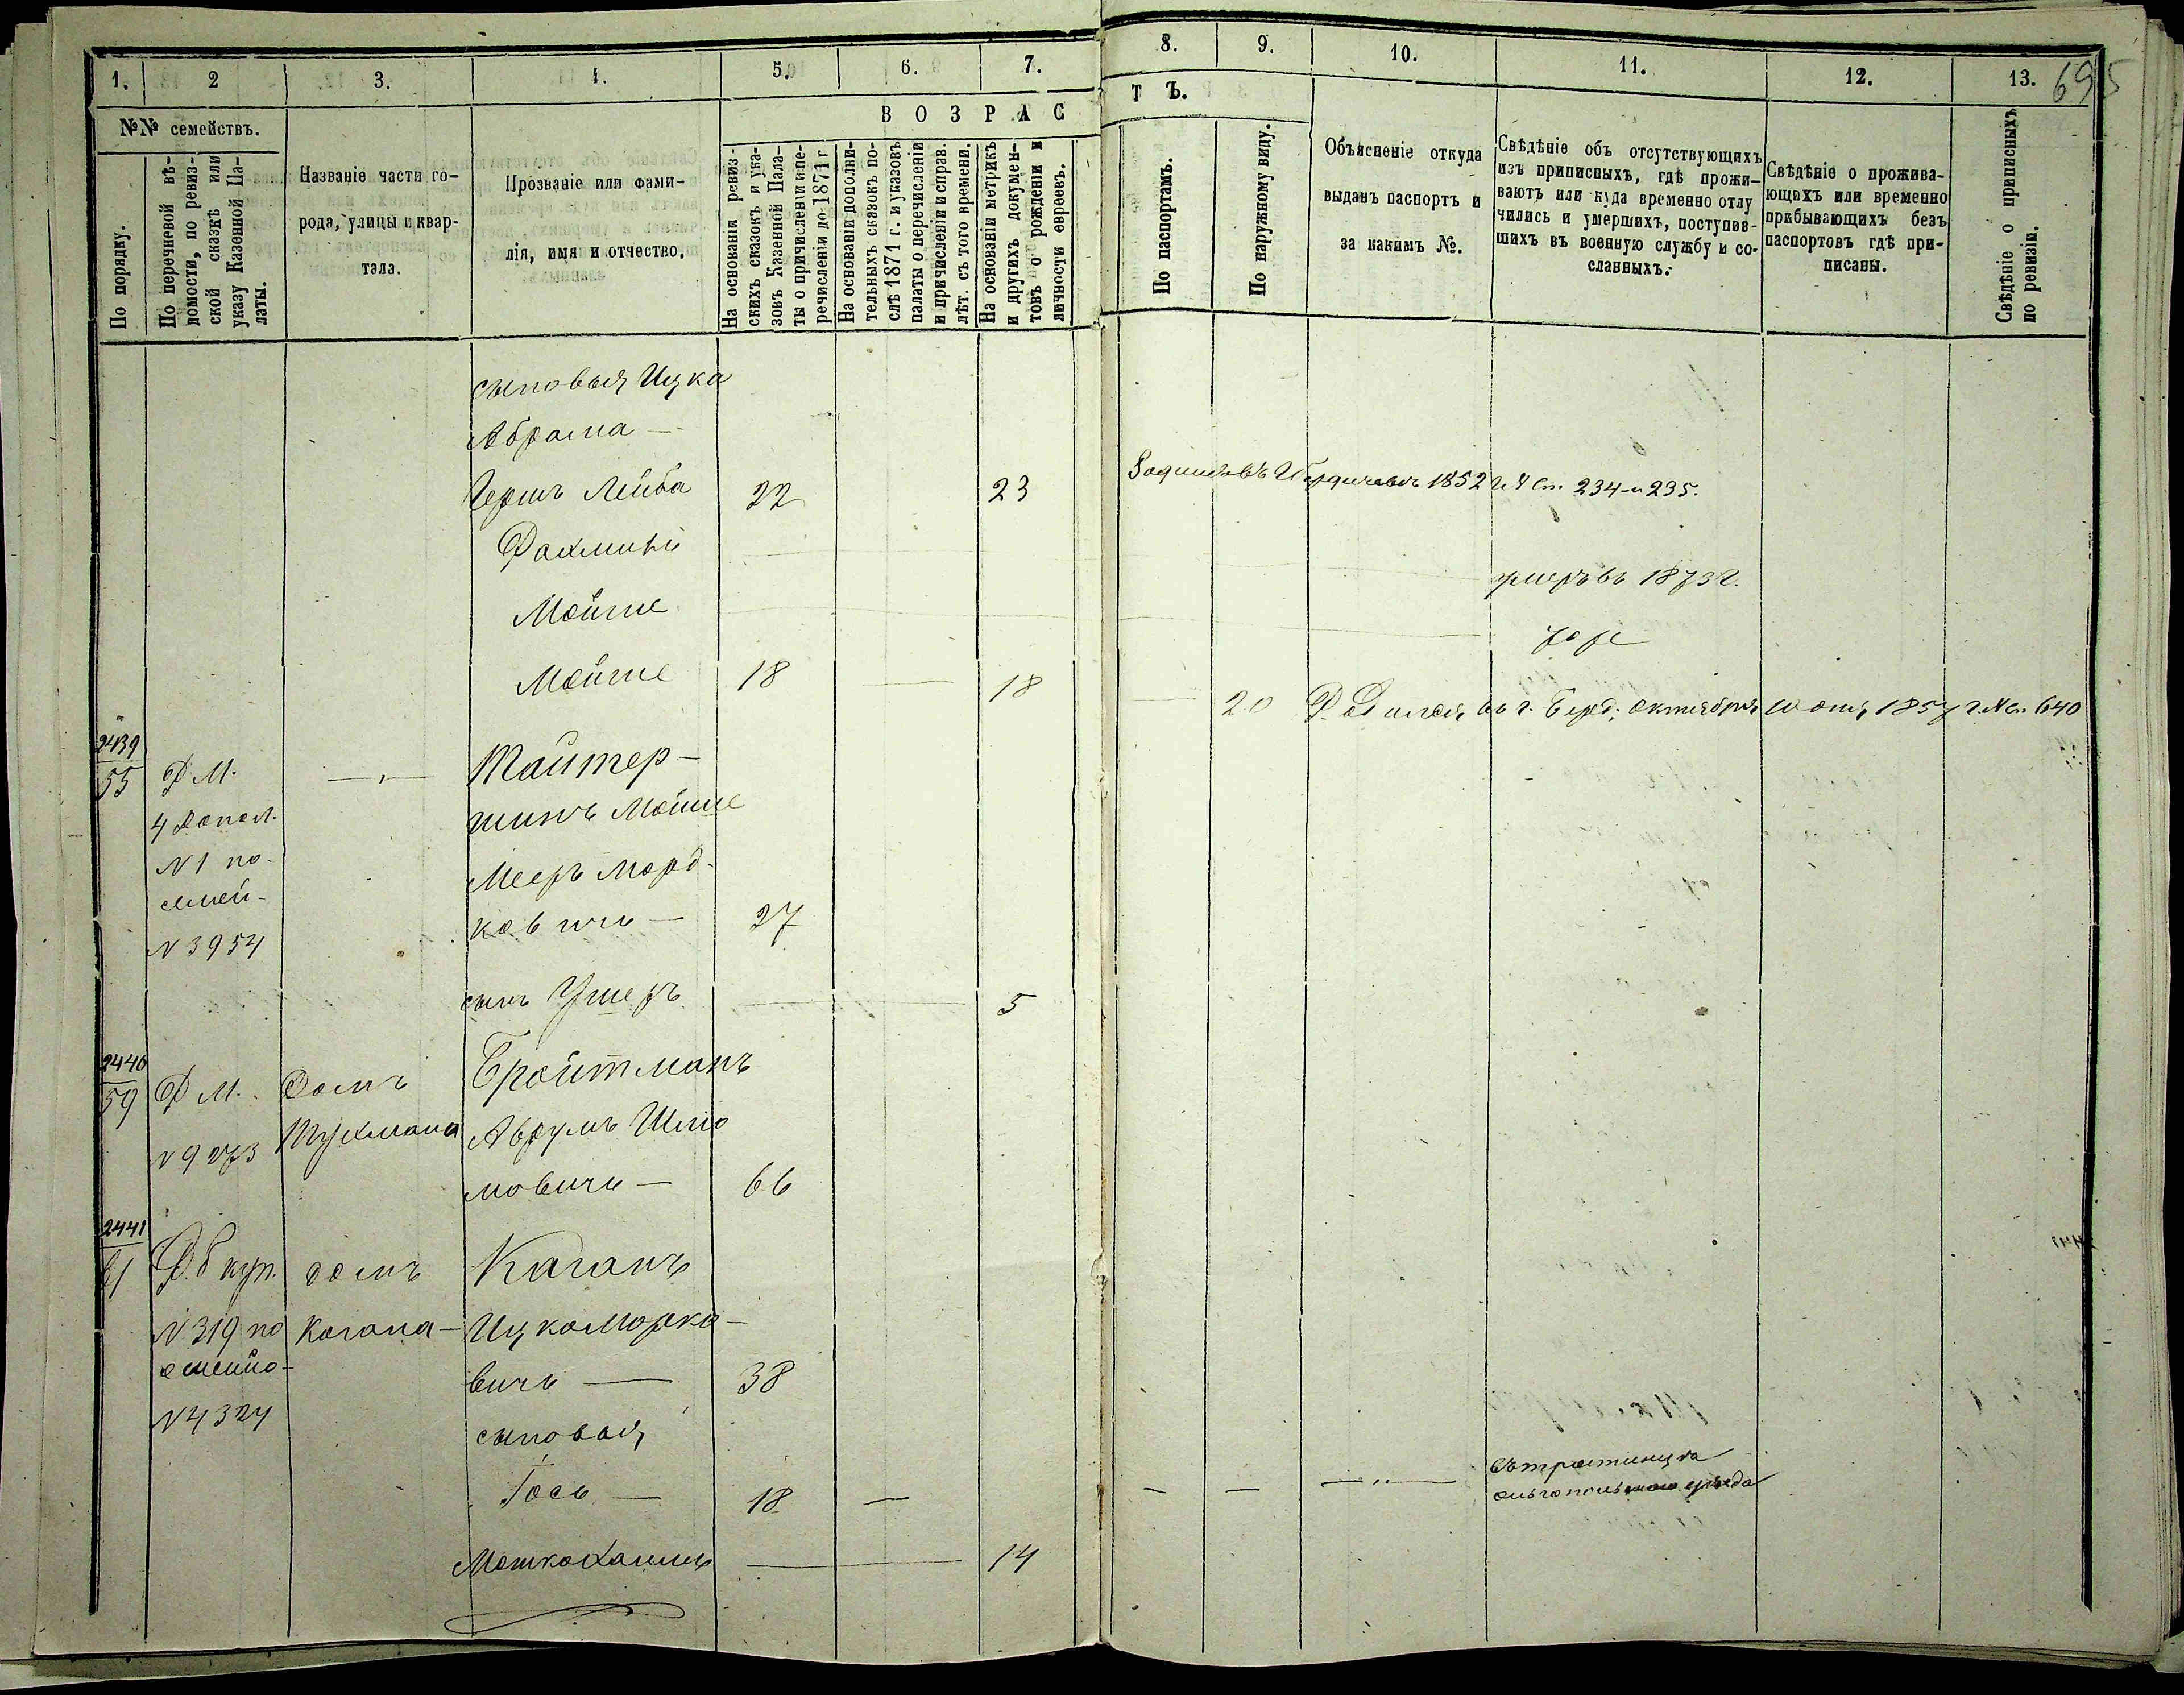 1. 2 3. 4. 5. 6. 7. 8. 9. 10. 11. 12. 13. 695
№№ семействъ.
По порядку.
По перечневой вѣ-
домости, по ревиз-
ской сказкѣ или
указу Казенной Па-
латы.
Названіе части го-
рода, улицы и квар-
тала.
Прозваніе или фами-
лія, имя и отчество.
ВОЗРАСТЪ.
На основаніи ревиз-
скихъ сказокъ и ука-
зовъ Казенной Пала-
ты о причисленіи и пе-
речислени до 1871 г
На основаніи дополни-
тельныхъ сказокъ по-
слѣ 1871 г. и указовъ
палаты о перечисленіи
и причисленіи и справ.
лѣт. съ того времени.
На основаніи метрикъ
и другихъ докумен-
товъ о рожденіи и
личности евреевъ.
По паспортамъ.
По наружному виду.
Объясненіе откуда
выданъ паспортъ и
за какимъ №.
Свѣдѣніе объ отсутствующихъ
изъ приписныхъ, гдѣ прожи-
ваютъ или куда временно отлу
чились и умершихъ, поступив-
шихъ въ военную службу и со-
сланныхъ.
Свѣдѣніе о прожива-
ющихъ или временно
прибывающихъ безъ
паспортовъ гдѣ при-
писаны.
Свѣдѣніе о приписныхъ
по ревизіи.
сыновья Ицка
Абрама —
Гершъ Лейба 22 23 1852 г. 234 и 235.
Рахмиль умеръ въ 1873 г.
Мойше тоже
Мойше 18 — 18 — 20 въ г. Берд. октября 10 дня 1857 г. № 640
2439
55 Р М. —„— Тайтер-
4 допол. шинъ Мойше
№ 1 по Мееръ Морд-
семей- ковичъ — 27
№ 3954
сынъ Ушеръ — 5
2440
59 Р М. домъ Бройтманъ
№ 9273 Тухмана Аврумъ Шлио
мовичъ — 66
2441
61 Р. б куп. домъ Каганъ
№ 319 по Кагана — Ицко Морко-
семейно- вичъ — 38
№ 4324
сыновья,
Іось — 18 — — — —„— въ
уѣзда
Мошко Хаимъ — 14